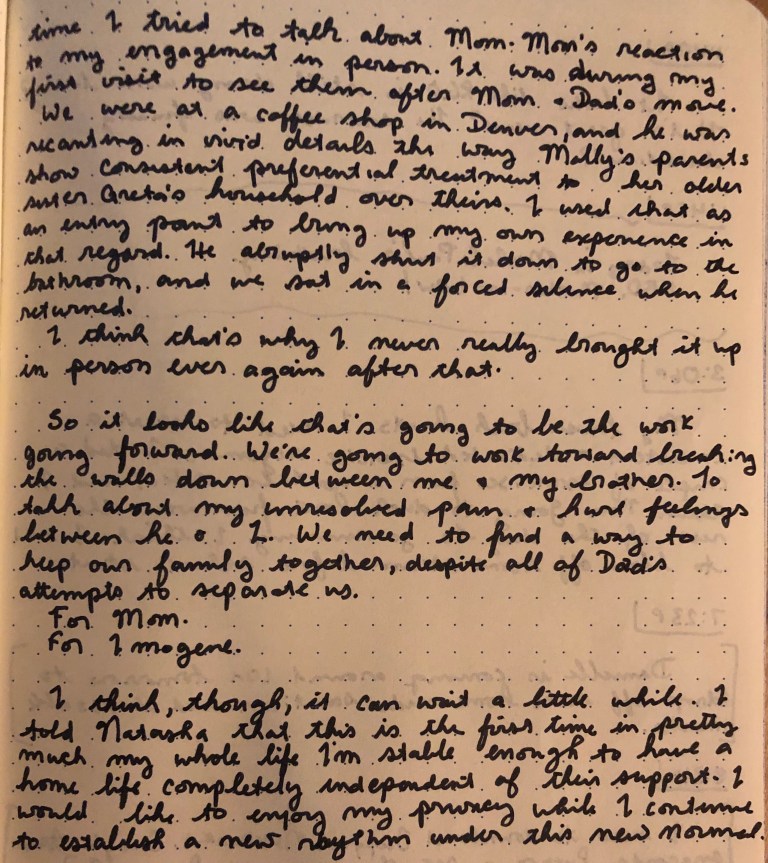 time I tried to talk about Mom. Mom's reaction
to my engagement in person. It was during my
first visit to see them after Mom & Dad's move.
We were at a coffee shop in Denver, and he was
recanting in vivid details the way Molly's parents
show consistent preferential treatment to her older
sister Greta's household over theirs. I used that as
an entry point to bring up my own experience in
that regard. He abruptly shut it down to go to the
bathroom, and we sat in a forced silence when he
returned.
I think that's why I never really brought it up
in person ever again after that.
So it looks like that's going to be the work
going forward. We're going to work toward breaking
the walls down between me & my brother. To
talk about my unresolved pain & hurt feelings
between he & I. We need to find a way to
keep our family together, despite all of Dad's
attempts to separate us.
For Mom.
For Imogene.
I think, though, it can wait a little while. I
told Natasha that this is the first time in pretty
much my whole life I'm stable enough to have a
home life completely independent of their support. I
would like to enjoy my privacy while I continue
to establish a new rhythm under this new normal.